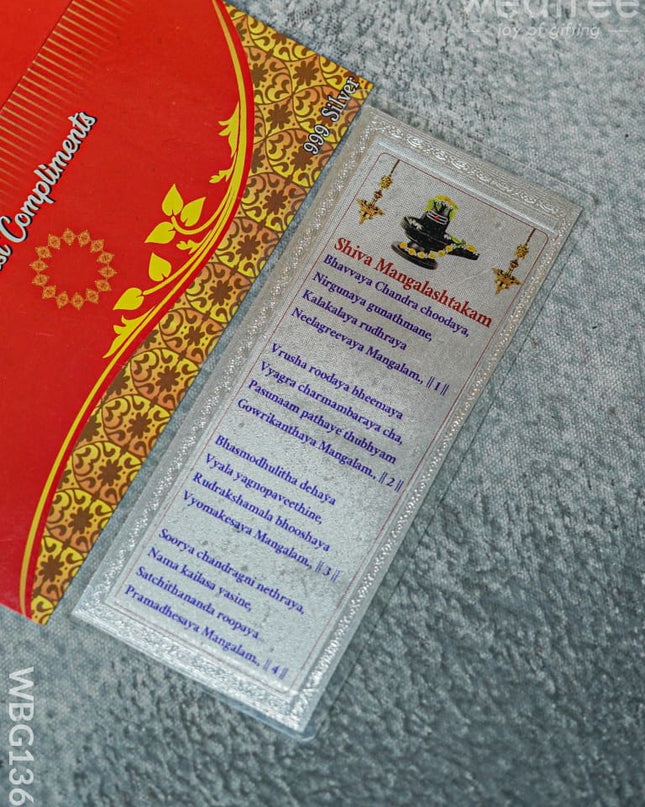 joy of gifting
999 Silver
Compliments
Shiva Mangalashtakam
Bhavvaya Chandra choodaya,
Nirgunaya gunathmane,
Kalakalaya rudhraya
Neelagreevaya Mangalam., || 1 ||
Vrusha roodaya bheemaya
Vyagra charmambaraya cha,
Pasunaam pathaye thubhyam
Gowrikanthaya Mangalam., || 2 ||
Bhasmodhulitha dehaya
Vyala yagnopaveethine,
Rudrakshamala bhooshaya
Vyomakesaya Mangalam., || 3 ||
Soorya chandragni nethraya,
Nama kailasa yasine,
Satchithananda roopaya
Pramadhesaya Mangalam., || 4 ||
WBG136